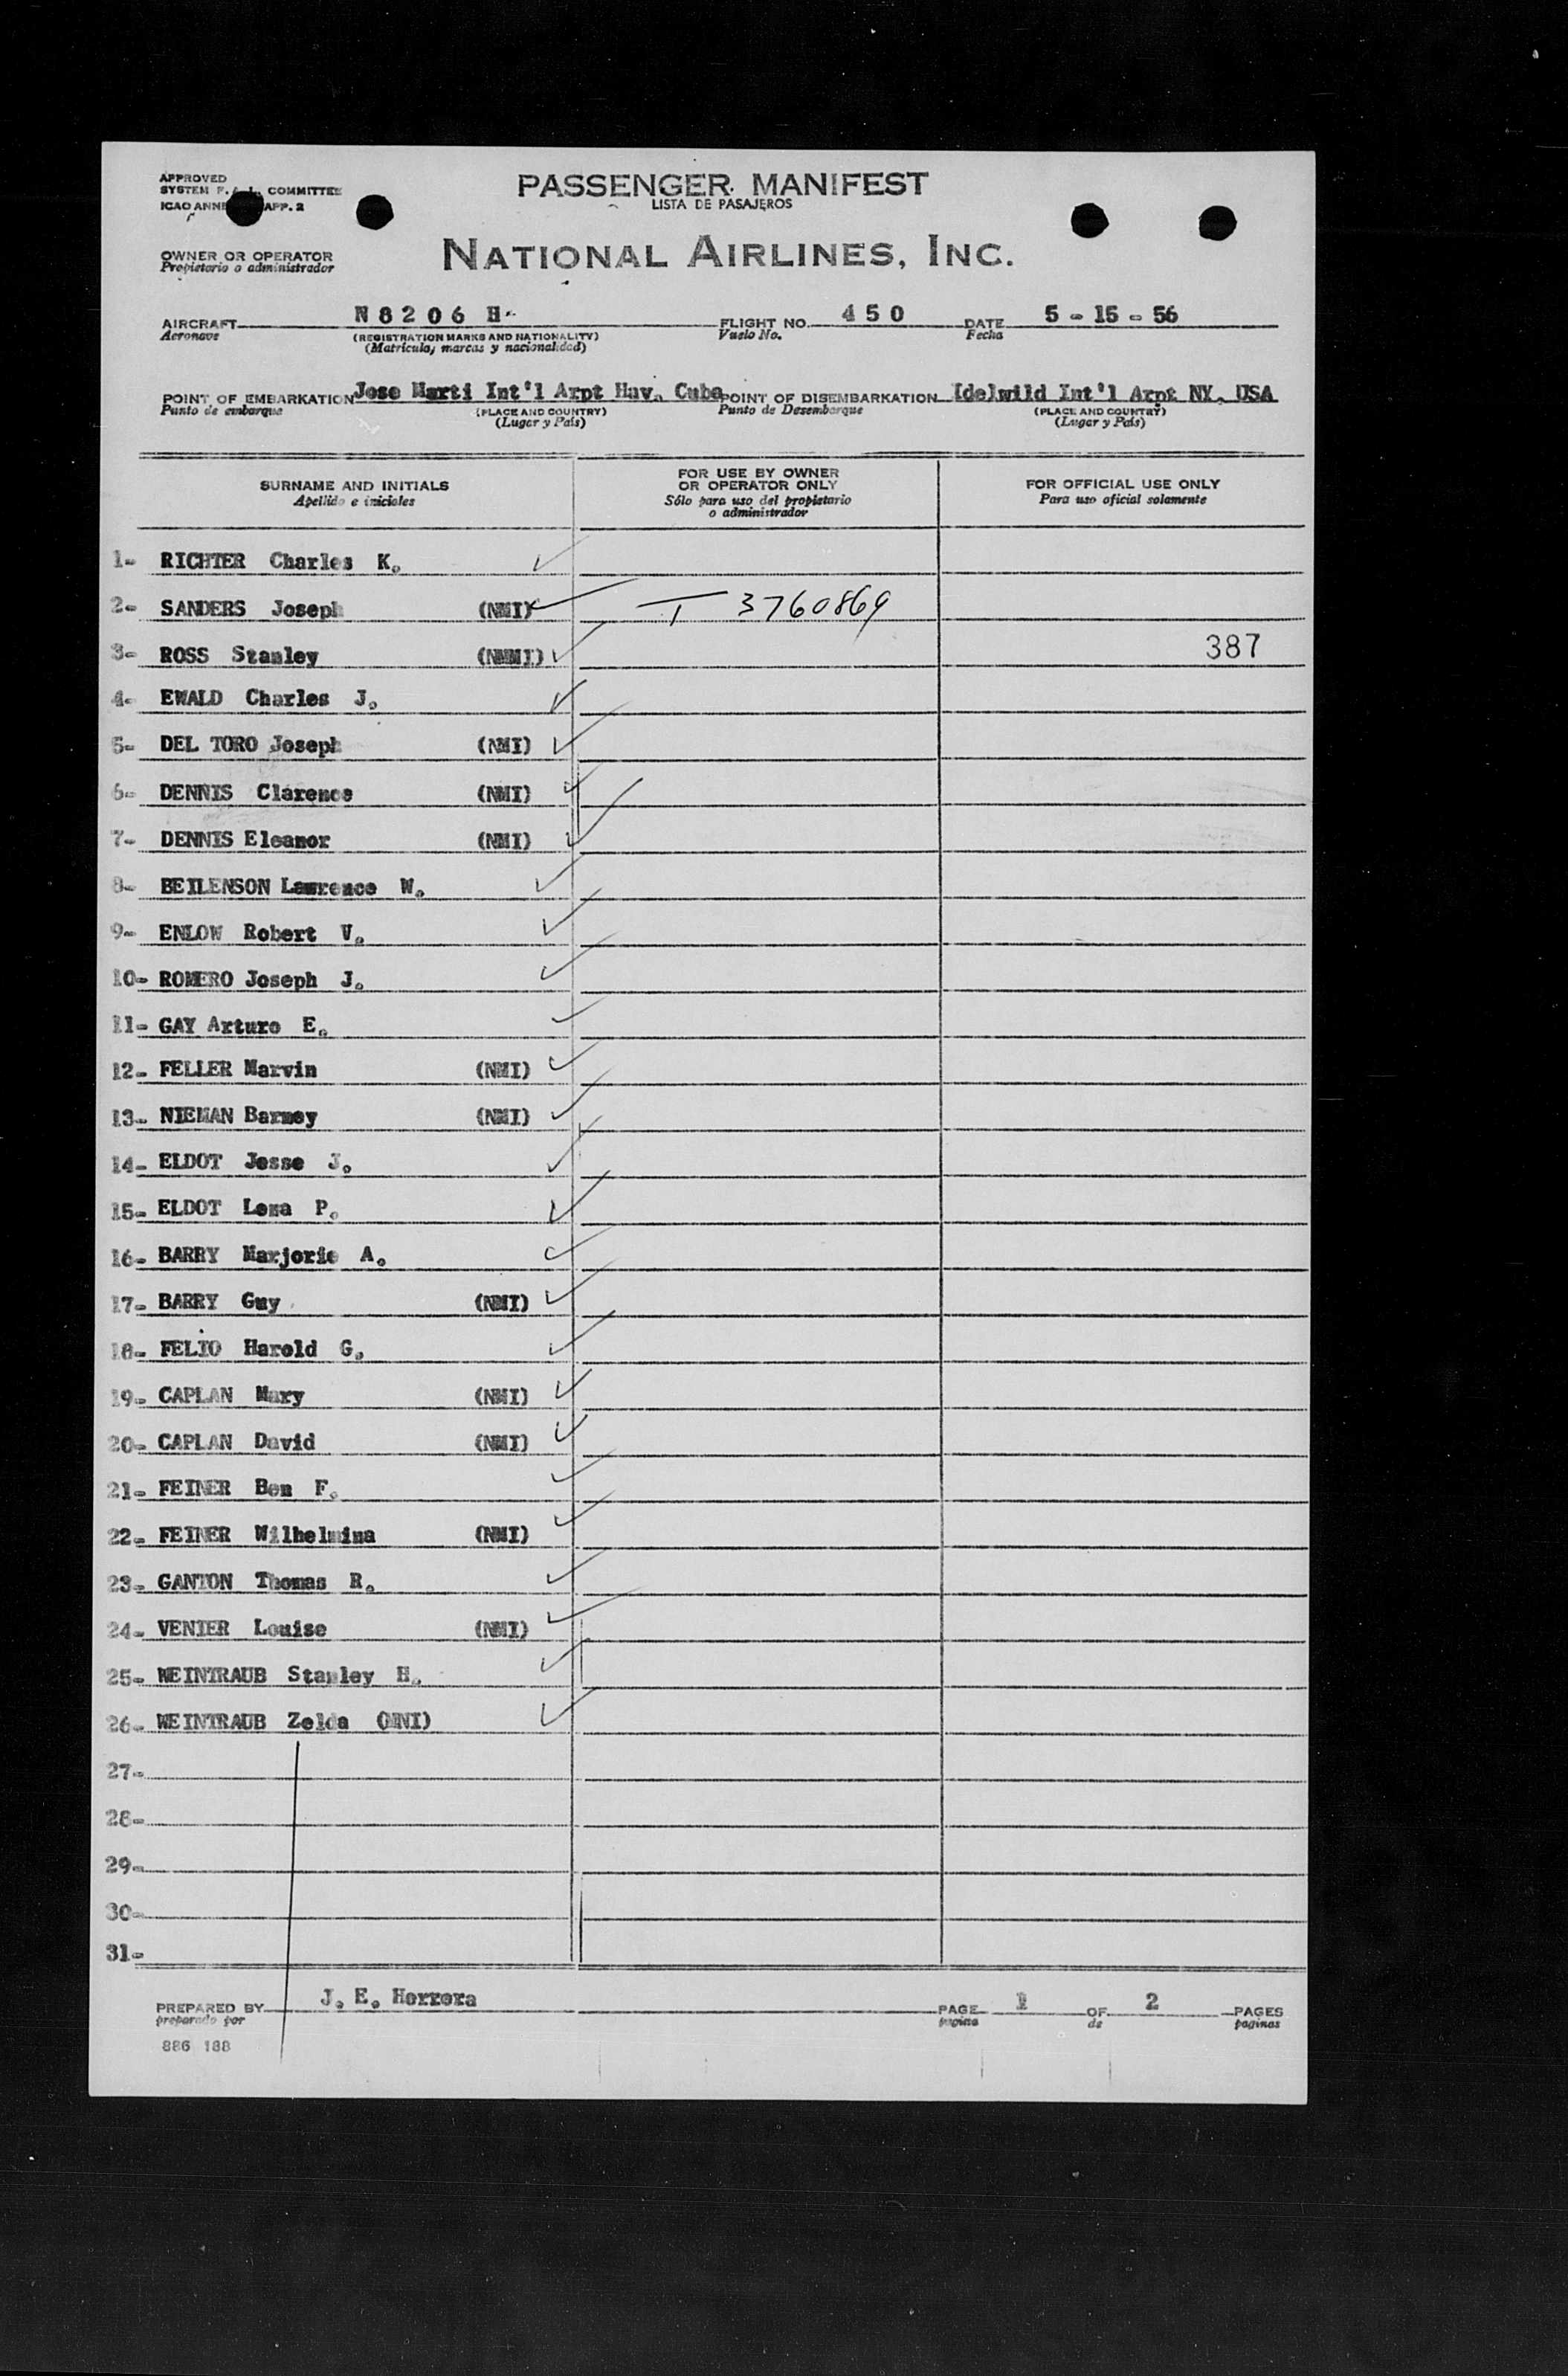 APPROVED
SYSTEM F. A. L. COMMITTEE
ICAO ANNE APP. 2
PASSENGER MANIFEST
LISTA DE PASAJEROS
OWNER OR OPERATOR
Propietario o administrador
NATIONAL AIRLINES, INC.
AIRCRAFT N 8 2 0 6 H FLIGHT NO. 4 5 0 DATE 5 - 15 - 56
Aeronave (REGISTRATION MARKS AND NATIONALITY) Vuelo No. Fecha
(Matricula, marcas y nacionalidad)
POINT OF EMBARKATION Jose Marti Int'l Arpt Hav. Cuba POINT OF DISEMBARKATION Idelwild Int'l Arpt NY, USA
Punto de embarque (PLACE AND COUNTRY) Punto de Desembarque (PLACE AND COUNTRY)
(Lugar y País) (Lugar y País)
SURNAME AND INITIALS
Apellido e iniciales
FOR USE BY OWNER
OR OPERATOR ONLY
Sólo para uso del propietario
o administrador
FOR OFFICIAL USE ONLY
Para uso oficial solamente
1- RICHTER Charles K.
2- SANDERS Joseph (NMI) T 3760869
3- ROSS Stanley (NMMI) 387
4- EWALD Charles J.
5- DEL TORO Joseph (NMI)
6- DENNIS Clarence (NMI)
7- DENNIS Eleanor (NMI)
8- BEILENSON Lawrence W.
9- ENLOW Robert V.
10- ROMERO Joseph J.
11- GAY Arturo E.
12- FELLER Marvin (NMI)
13- NIEMAN Barney (NMI)
14- ELDOT Jesse J.
15- ELDOT Lena P.
16- BARRY Marjorie A.
17- BARRY Guy (NMI)
18- FELIO Harold G.
19- CAPLAN Mary (NMI)
20- CAPLAN David (NMI)
21- FEINER Ben F.
22- FEINER Wilhelmina (NMI)
23- GANTON Thomas R.
24- VENIER Louise (NMI)
25- WEINTRAUB Stanley H.
26- WEINTRAUB Zelda (MNI)
27-
28-
29-
30-
31-
PREPARED BY J. E. Herrera PAGE 1 OF 2 PAGES
preparado por pagina de paginas
886 188